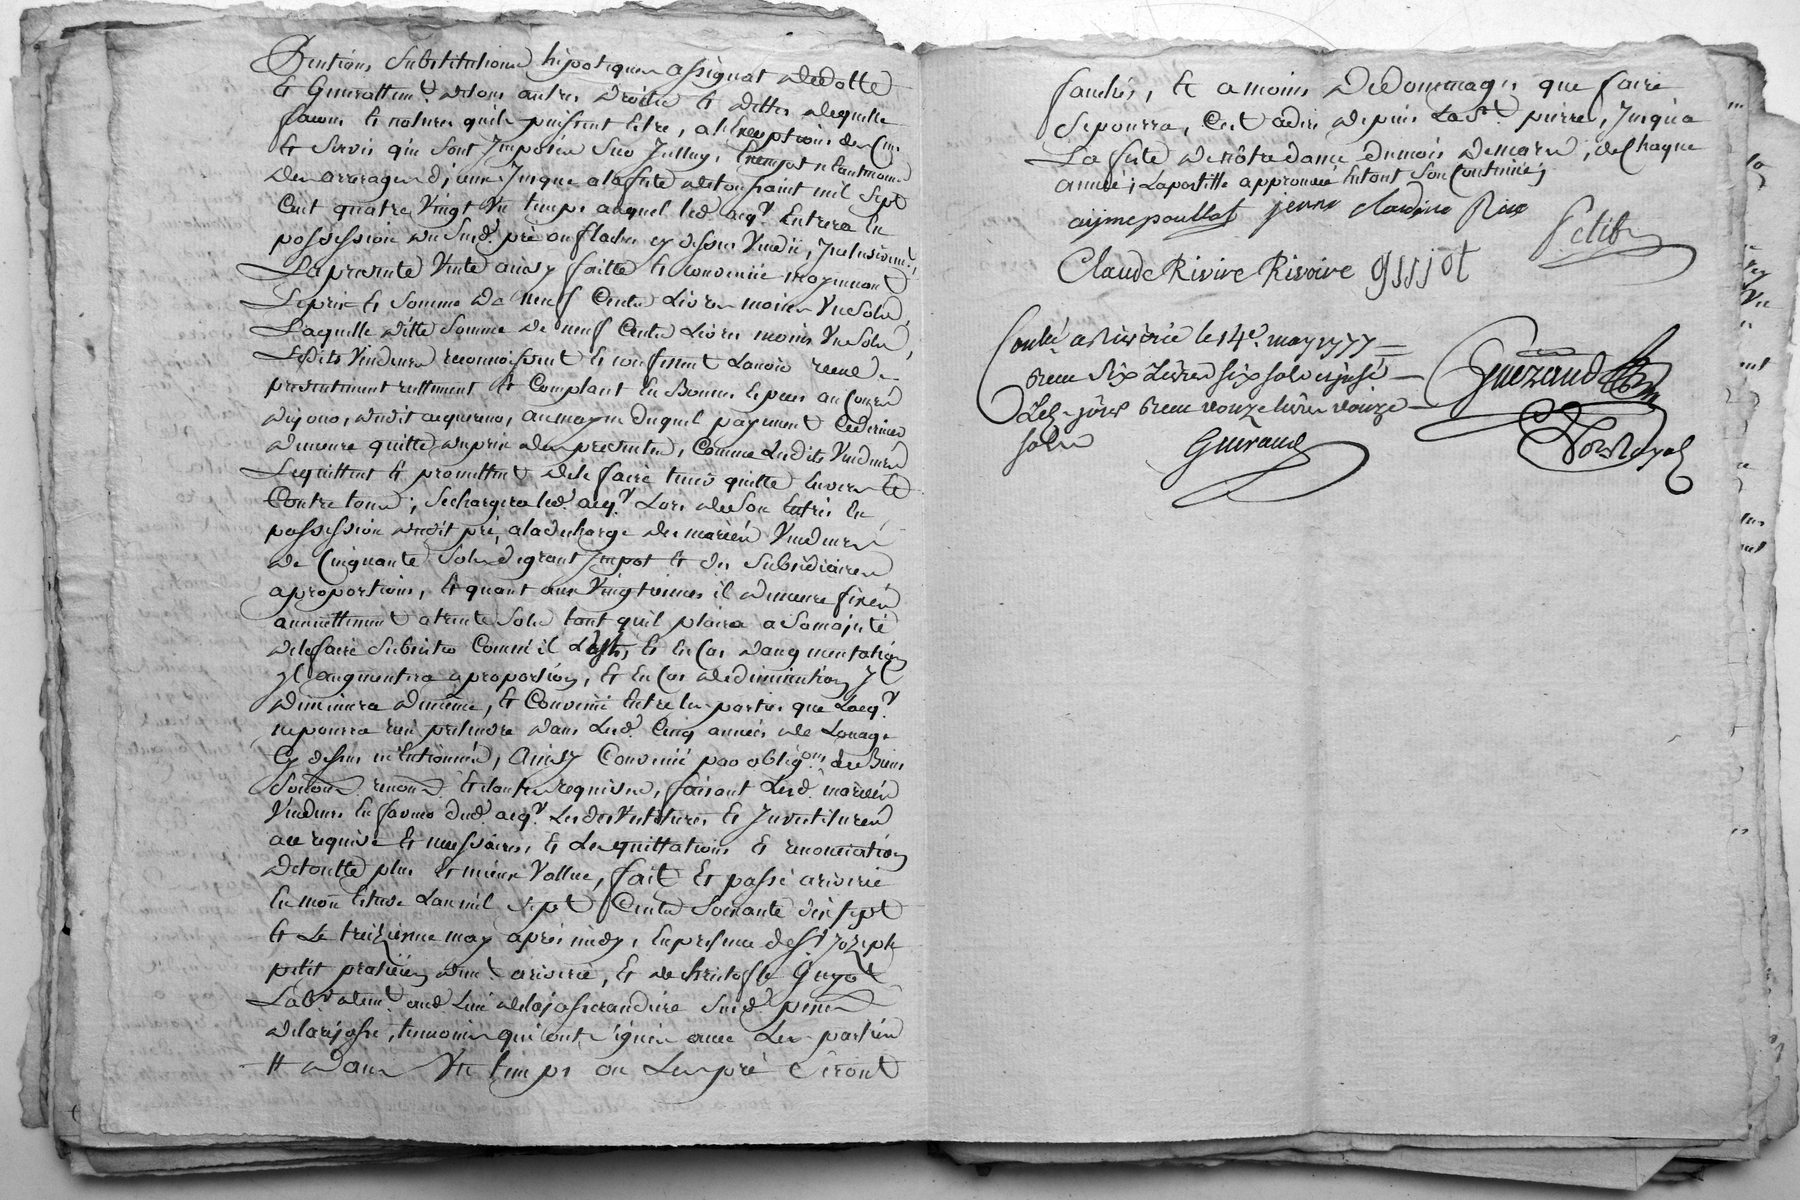 substitutions hipotiques assignat de dotte
et generallemt. de tous autres droits et dettes de quelle
façons et natures quils puissent estre, a l'exeption des cens
et servis qui sont jmposés sur jceluy, exempt neantmoins
des arrerages d'jceux jusque a la feste de toussaint mil sept
cent quatre vingt un temps auquel led. acqr. entrera en
possession dud. pré ou flache cy dessus vendü, jnclusivemt.,
La presente vente ainsy faitte et convenüe moyennant
Le prix et somme de neuf cents Livres moins un sols,
Laquelle ditte somme de neuf cents Livres moins un sols,
Lesdits vendeurs reconnoissent et confessent L'avoir receüe
presentement reellement et comptant en bonnes especes au cours
du jour, dudit acquereur, au moyen duquel payement ce dernier
demeure quitte du prix des presentes, comme Lesdits vendeurs
L'en quittent et promettent de le faire tenir quitte envers et
contre tous; se chargera led. acqr. Lors de son entrée en
possession dudit pré, a la decharge des mariés vendeurs
de cinquante sols de grand jmpot et des subsidiaires
a proportions, et quant aux vingtiemes il demeure fixés
annuellement a trente sols tant quil plaira a sa majesté
de le faire subsister comme il L'est, et en cas d'augmentation
jl augmentera a proportion, et en cas de diminution jl
diminuera de même, et convenü entre les parties que L'acqr.
ne pourra rien pretendre dans Lesd. cinq années de Louage
cy dessus mentionné, ainsy convenü par obligons. de biens
soumons. renons. et clauses requises, faisant Lesd. mariés
vendeurs en faveur dud. acqr. Les devestitures et jnvestitures
au requis et necessaires, et Les quittations et renonciation
de toutte plus et mieux vallue, fait et passé a riverie
en mon estude L'an mil sept cents soixante dix sept
et Le treizieme may après midy, en presence de sr. jozeph
petit praticien demt. a riverie, et de christofle guyot
Labr. demt. au d. Lieu de la jasserandiere sur d. psse.
de larajasse, temoins qui ont signés avec Les parties
# dans un temps ou Les prés seront
fauchés, et a moins de dommages que faire
se pourra, c'est a dire depuis La st. pierre, jusqu'a
La feste de nôtre dame du mois de mars, de chaque
année; L'apostille approuvée en tout son contenüe;
aijme poullat jeane claudine Rive
Petit
Claude Rivire Rivoire gssjot
Contlé. a Riverie le 14e. may 1777
Reçu six Livres six sols insiné
Led. jour Reçu douze Livres douze
sols
Guéraud
Guéraud